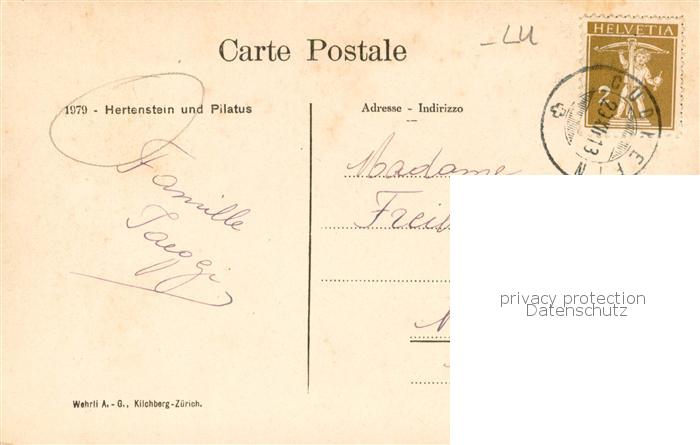 Carte Postale
- LU
HELVETIA
2
CUDREFIN
23.VI.13
1979 - Hertenstein und Pilatus
Adresse - Indirizzo
Famille
Jaeggi
Madame
Wehrli A.-G., Kilchberg-Zürich.
privacy protection
Datenschutz